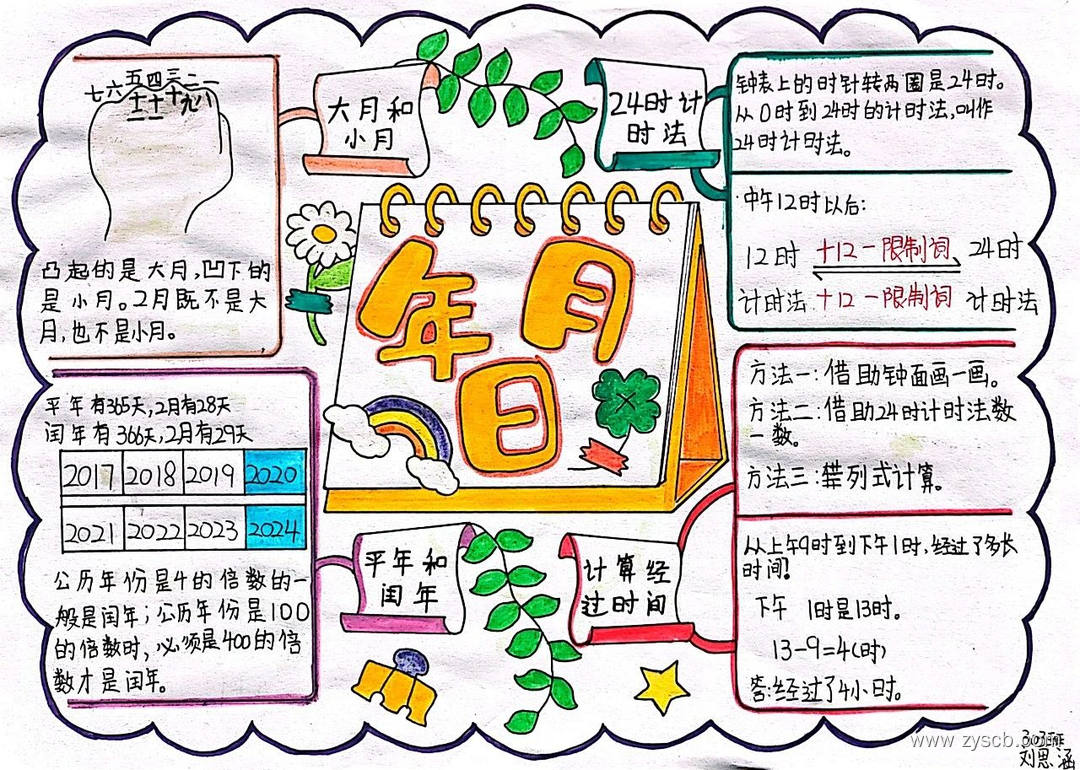 年月日
大月和
小月
七六五四三二一
十二十一十九八
凸起的是大月,凹下的
是小月。2月既不是大
月,也不是小月。
24时计
时法
钟表上的时针转两圈是24时。
从0时到24时的计时法,叫作
24时计时法。
中午12时以后:
12时 +12-限制词 24时
计时法 +12-限制词 计时法
平年和
闰年
平年有365天,2月有28天
闰年有366天,2月有29天
2017 2018 2019 2020
2021 2022 2023 2024
公历年份是4的倍数的一
般是闰年;公历年份是100
的倍数时,必须是400的倍
数才是闰年。
计算经
过时间
方法一:借助钟面画一画。
方法二:借助24时计时法数
一数。
方法三:列式计算。
从上午9时到下午1时,经过了多长
时间?
下午 1时是13时。
13-9=4(时)
答:经过了4小时。
303班
刘思涵
www.zyscb.com